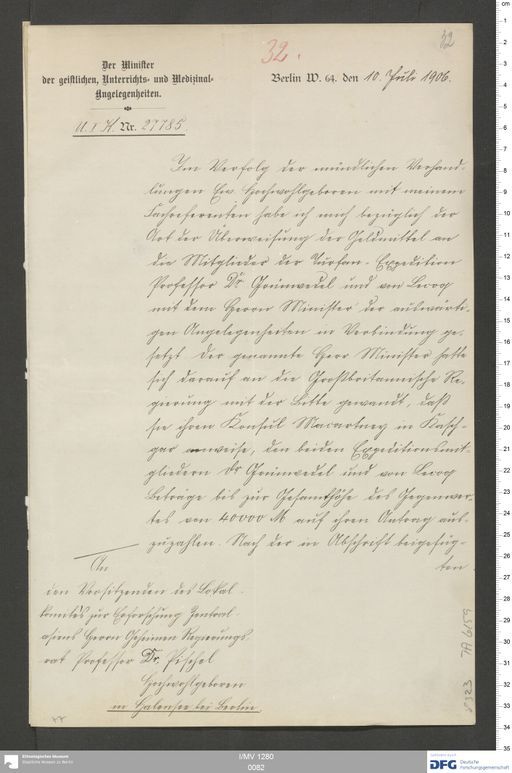 32.
32
Der Minister
der geistlichen, Unterrichts- und Medizinal-
Angelegenheiten.
U. I K. Nr. 27785
Berlin W. 64. den 10. Juli 1906.
Im Verfolg der mündlichen Verhand-
lungen Ew. Hochwohlgeboren mit meinem
Fachreferenten habe ich mich bezüglich der
Art der Überweisung der Geldmittel an
die Mitglieder der Turfan-Expedition
Professor Dr Grünwedel und von Lecoq
mit dem Herrn Minister der auswärti-
gen Angelegenheiten in Verbindung ge-
setzt. Der genannte Herr Minister hatte
sich darauf an die Großbritannische Re-
gierung mit der Bitte gewandt, daß
sie ihren Konsul Macartney in Kasch-
gar anweise, den beiden Expeditionsmit-
gliedern Dr Grünwedel und von Lecoq
Beträge bis zur Gesamthöhe des Gegenwer-
tes von 40000 M auf ihren Antrag aus-
zuzahlen. Nach der in Abschrift beigefüg-
ten
An
den Vorsitzenden des Lokal-
komités zur Erforschung Zentral-
asiens Herrn Geheimen Regierungs-
rat Professor Dr. Pischel
Hochwohlgeboren
in Halensee bei Berlin.
TA 6159
Ethnologisches Museum
Staatliche Museen zu Berlin
I/MV 1280
0082
DFG Deutsche
Forschungsgemeinschaft